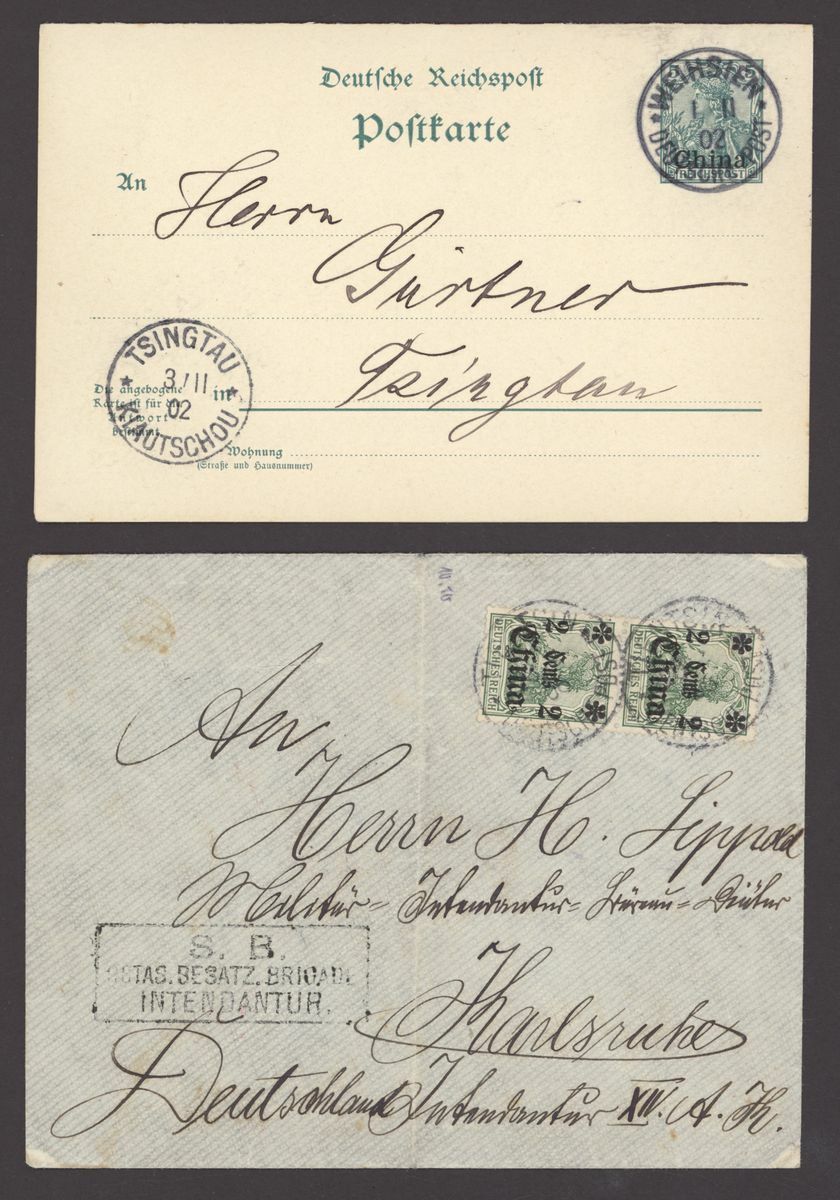 Deutsche Reichspost
Postkarte
WEIHSIEN
1 II
02
DEUTSCHE POST
China
REICHSPOST
An
Herrn
Gürtner
Tsingtau
TSINGTAU
3/II
02
KIAUTSCHOU
Die angebogene
Karte ist für die
Antwort
bestimmt.
in
Wohnung
(Straße und Hausnummer)
2 Cents 2
China
DEUTSCHES REICH
2 Cents 2
China
DEUTSCHES REICH
An
Herrn H. Lippold
Militär-Intendantur-Büreau-Diätar
S. B.
OSTAS. BESATZ. BRIGADE
INTENDANTUR.
Karlsruhe
Deutschland Intendantur XIV. A. K.